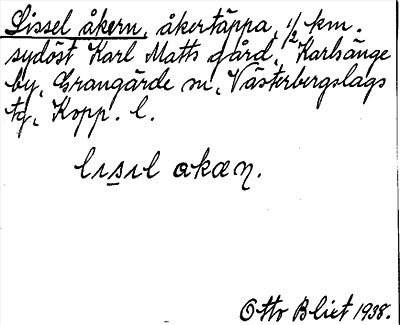 Lissel åkern, åkertäppa, 1/2 km.
sydöst Karl Matts gård, Karlsänge
by, Grangärde sn, Västerbergslags
tg, Kopp. l.
lɪsɪl akæɳ.
Otto Blixt 1938.